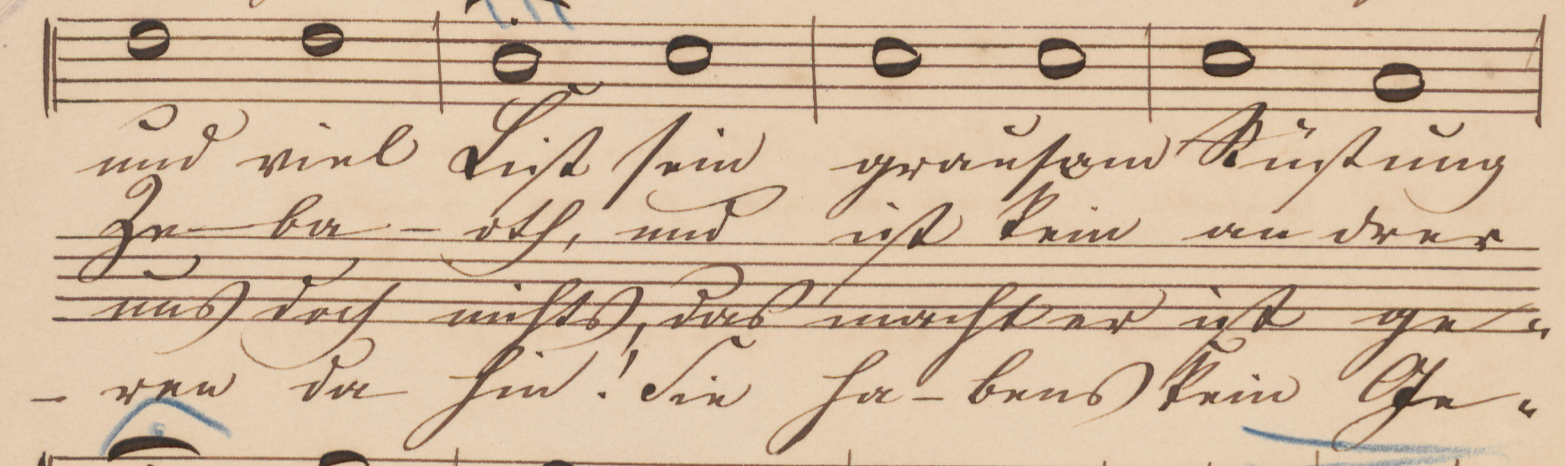 und viel List sein grausam Rüstung
Ze-ba-oth, und ist kein andrer
uns doch nichts, das macht er ist ge-
-ren da hin! Sie ha-bens kein Ge-